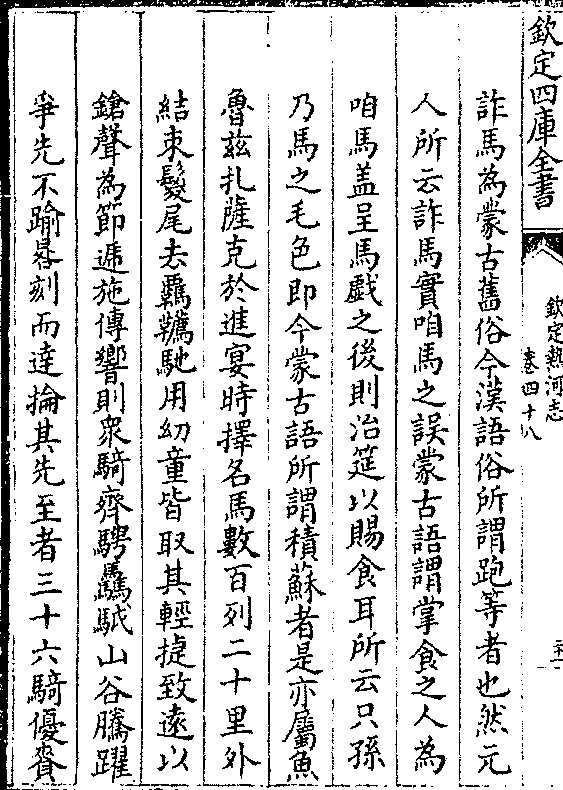 欽定四庫全書
欽定熱河志
卷四十八
詐馬為蒙古舊俗今漢語俗所謂跑等者也然元
人所云詐馬實咱馬之誤蒙古語謂掌食之人為
咱馬盖呈馬戲之後則治筵以賜食耳所云只孫
乃馬之毛色即今蒙古語所謂積蘇者是亦屬魚
魯兹扎薩克於進宴時擇名馬數百列二十里外
結束鬉尾去羈韉馳用幼童皆取其輕捷致遠以
鎗聲為節遞施傳響則衆騎齊騁驫駥山谷騰躍
爭先不踰晷刻而達掄其先至者三十六騎優賚